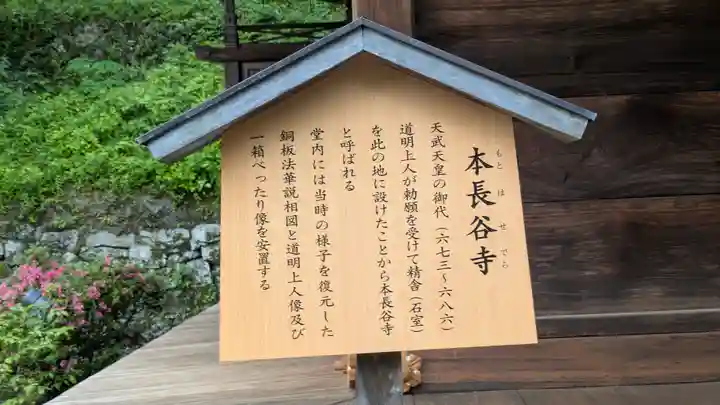 本長谷寺
もとはせでら
天武天皇の御代（六七三～六八六）
道明上人が勅願を受けて精舎（石室）
を此の地に設けたことから本長谷寺
と呼ばれる
堂内には当時の様子を復元した
銅板法華説相図と道明上人像及び
一箱べったり像を安置する